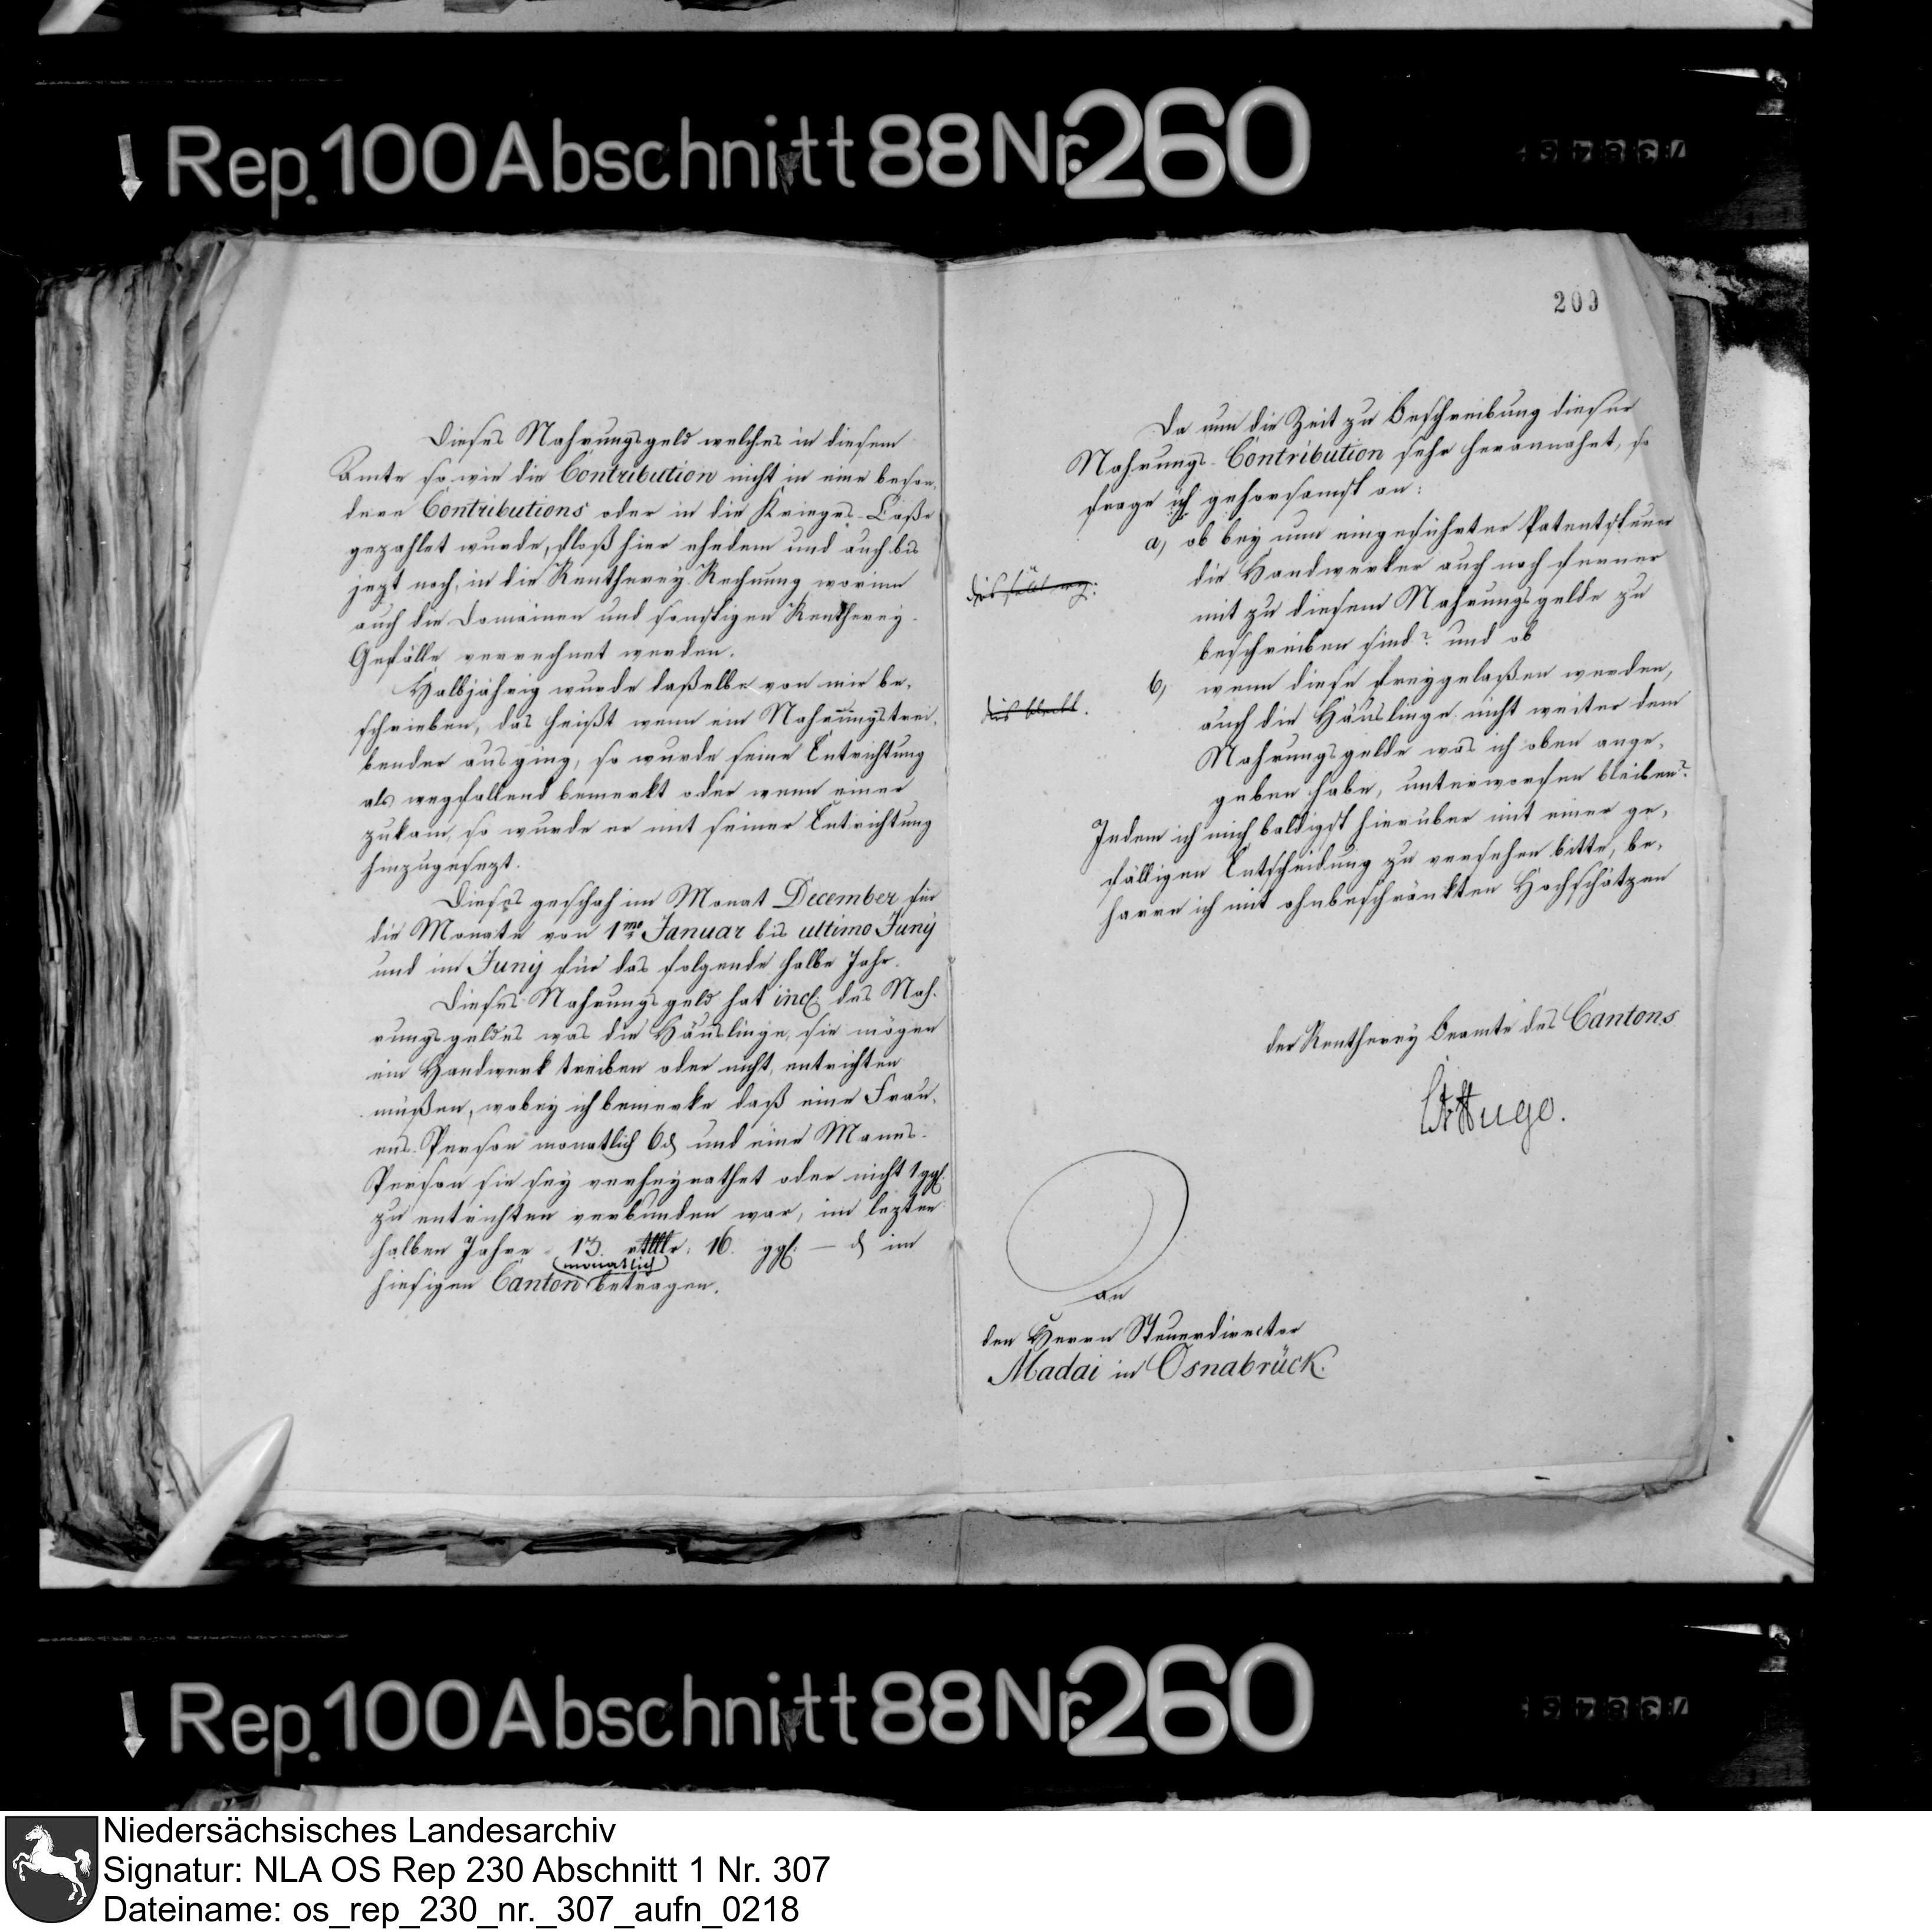 Rep. 100 Abschnitt 88 Nr. 260
Dieses Nahrungsgeld welches in diesem
Amte so wie die Contribution nicht in eine beson¬
dere Contributions oder in die Krieges-Caße
gezahlet wurde, floß hier ehedem und auch bis
jezt noch, in die Rentherey Rechnung worinn
auch die Domainen und sonstigen Rentherey-
Gefälle verrechnet werden.
Halbjährig wurde daßelbe von mir be¬
schrieben, das heißt wenn ein Nahrungstrei¬
bender ausging, so wurde seine Entrichtung
als wegfallend bemerkt oder wenn einer
zukam, so wurde er mit seiner Entrichtung
hinzugesezt.
Dieses geschah im Monat December für
die Monate von 1mo Januar bis ultimo Juny
und im Juny für das folgende halbe Jahr.
Dieses Nahrungsgeld hat incl. des Nah¬
rungsgeldes was die Häuslinge, sie mögen
ein Handwerk treiben oder nicht, entrichten
müßen, wobey ich bemerke daß eine Frau¬
ens-Person monatlich 6 ₰ und eine Manns-
Person sie sey verheyrathet oder nicht 1 ggl.
zu entrichten verbunden war, im lezten
halben Jahre 13. rthlr. 16. ggl. — ₰ im
hiesigen Canton monatlich betragen.
209
Da nun die Zeit zu Beschreibung dieser
Nahrungs-Contribution sehr herannahet, so
frage ich gehorsamst an:
a, ob bey nun eingeführter Patentsteuer
die Handwerker auch noch ferner
mit zu diesem Nahrungsgelde zu
beschreiben sind? und ob
dis fällt weg.
b, wenn diese freygelaßen werden,
auch die Häuslinge nicht weiter dem
Nahrungsgelde was ich oben ange¬
geben habe, unterworfen bleiben?
dis bleibt.
Indem ich mich baldigst hierüber mit einer ge¬
fälligen Entscheidung zu versehen bitte, be¬
harre ich mit ohnbeschränkten Hochschätzen
der Rentherey Beamte des Cantons
Hugo.
an
den Herrn Steuerdirector
Madai in Osnabrück.
Rep. 100 Abschnitt 88 Nr. 260
Niedersächsisches Landesarchiv
Signatur: NLA OS Rep 230 Abschnitt 1 Nr. 307
Dateiname: os_rep_230_nr._307_aufn_0218